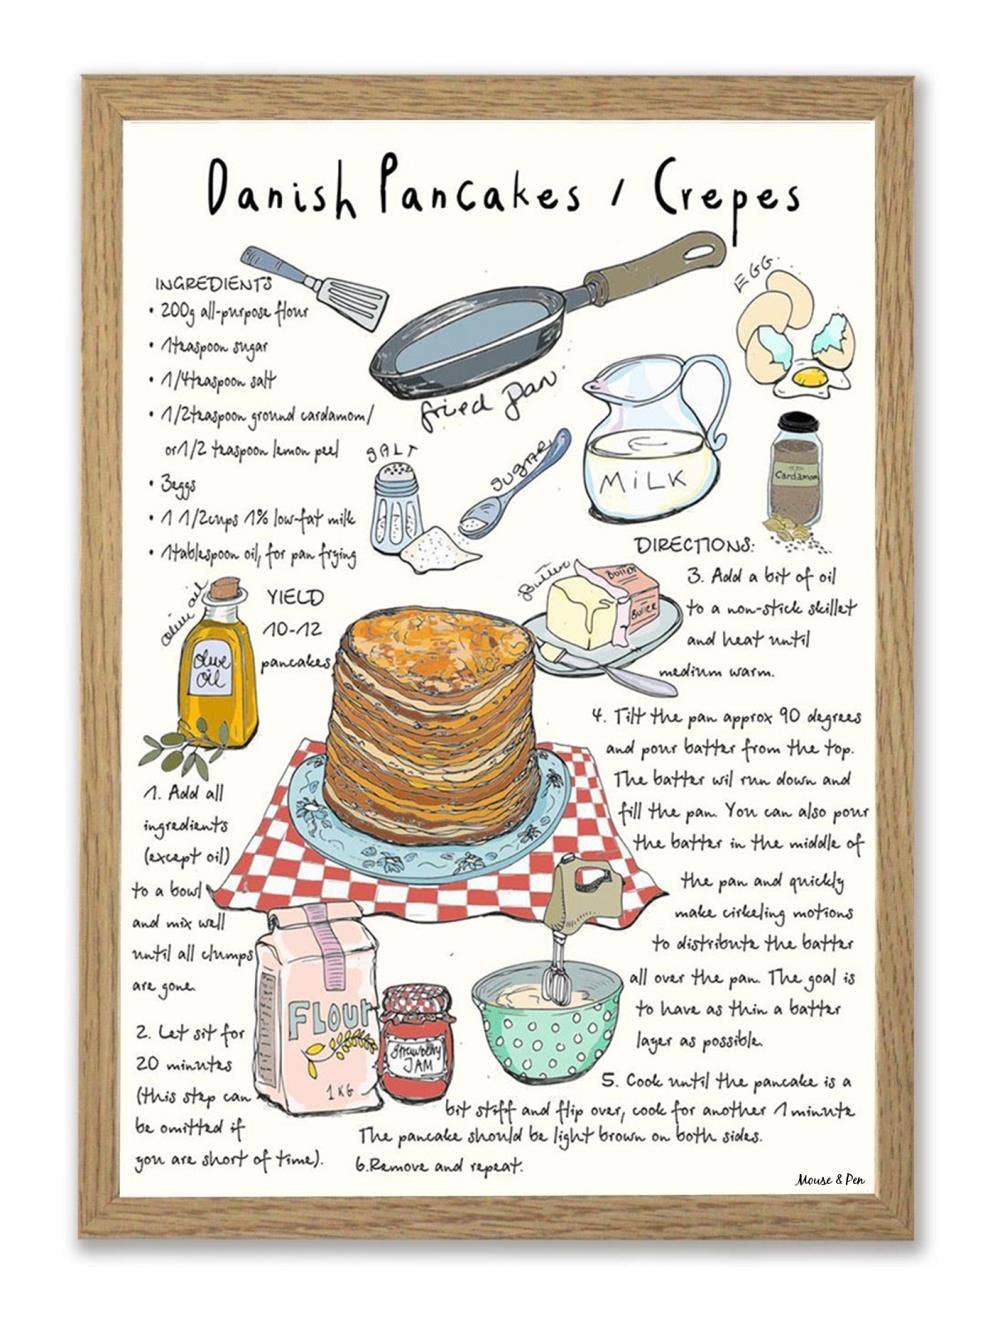 Danish Pancakes / Crepes
INGREDIENTS
• 200g all-purpose flour
• 1teaspoon sugar
• 1/4teaspoon salt
• 1/2teaspoon ground cardamom/
or1/2 teaspoon lemon peel
• 3eggs
• 1 1/2cups 1% low-fat milk
• 1tablespoon oil, for pan frying
fried pan.
EGG
SALT
SUGAR
MiLK
Cardamom
olive oil
Olive
Oil
YIELD
10-12
pancakes
Butter
Butter
Butter
1. Add all
ingredients
(except oil)
to a bowl
and mix well
until all clumps
are gone.
2. Let sit for
20 minutes
(this step can
be omitted if
you are short of time).
FLOUR
1 KG
Strawberry
JAM
DIRECTIONS:
3. Add a bit of oil
to a non-stick skillet
and heat until
medium warm.
4. Tilt the pan approx 90 degrees
and pour batter from the top.
The batter wil run down and
fill the pan. You can also pour
the batter in the middle of
the pan and quickly
make cirkeling motions
to distribute the batter
all over the pan. The goal is
to have as thin a batter
layer as possible.
5. Cook until the pancake is a
bit stiff and flip over, cook for another 1 minute
The pancake should be light brown on both sides.
6.Remove and repeat.
Mouse & Pen